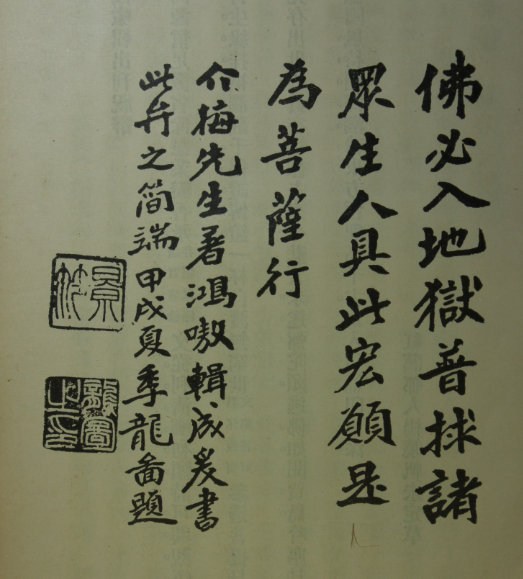 佛必入地獄普捄諸
眾生人具此宏願是
為菩薩行
介梅先生著鴻嗷輯成爰書
此弁之簡端甲戌夏季龍啚題
龍圖之印